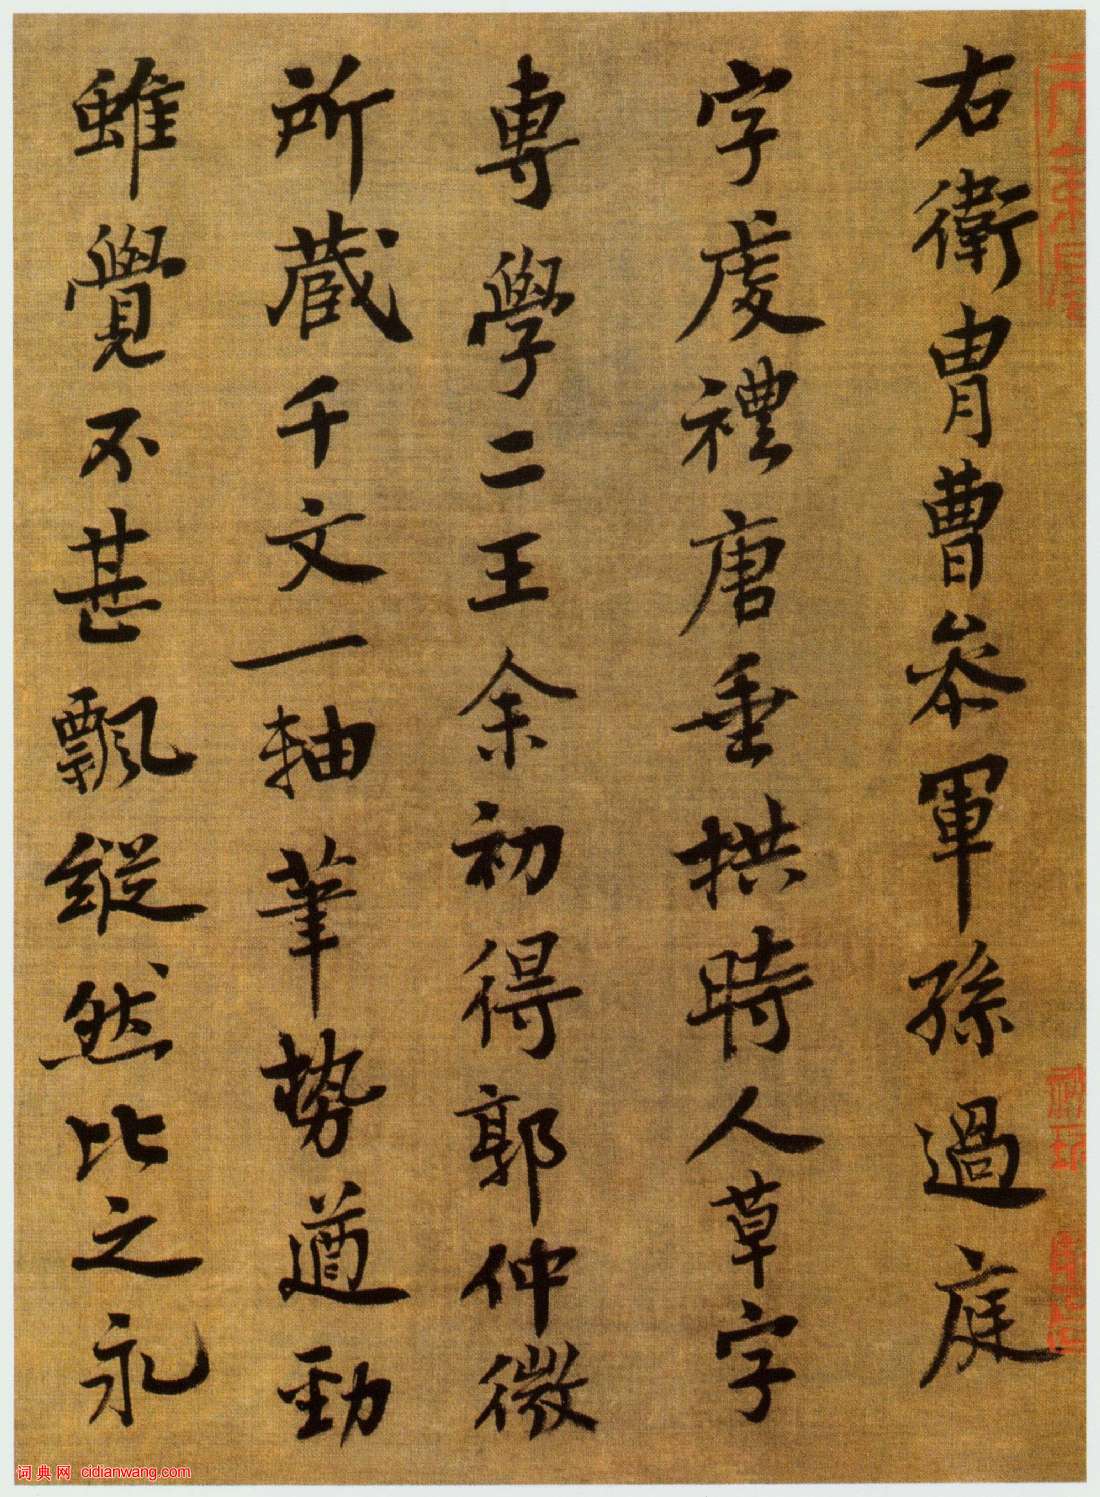 右衛冑曹叅軍孫過庭
字虔禮唐垂拱時人草字
專學二王余初得郭仲微
所蔵千文一軸筆勢遒勁
雖覺不甚飄縱然比之永
词典网 cidianwang.com